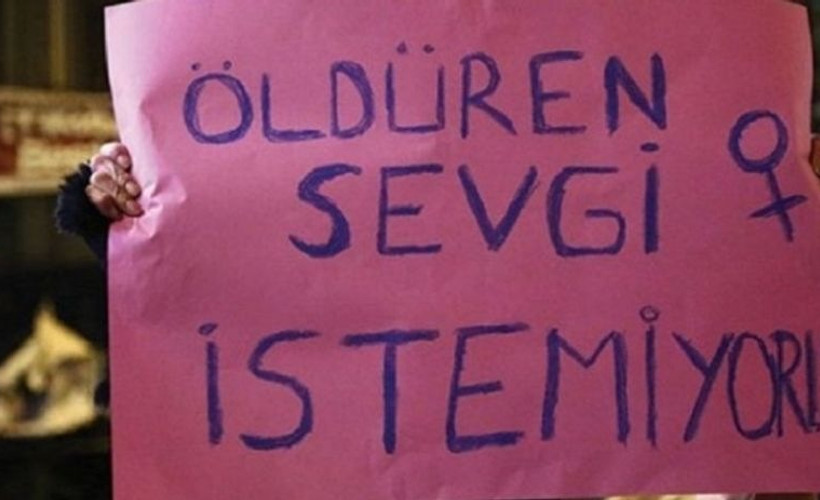 ÖLDÜREN
SEVGİ
İSTEMİYOR